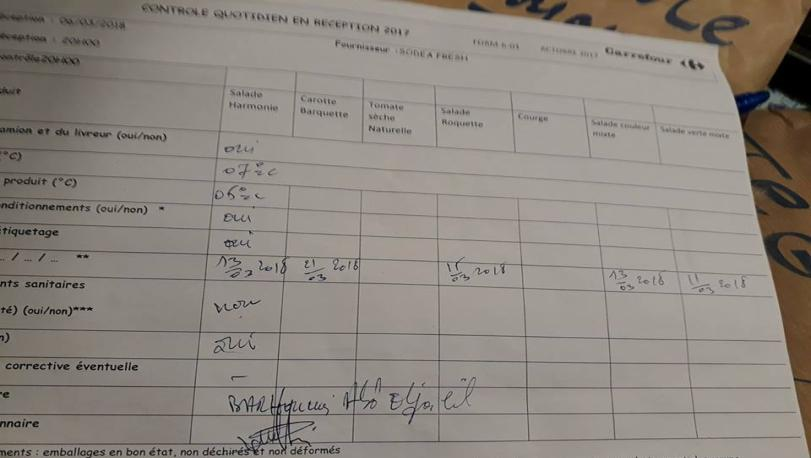 CONTROLE QUOTIDIEN EN RECEPTION 2017
FORM 6-01 OCTOBRE 2017 Carrefour
Fournisseur : SODEA FRESH
ception : 06/03/2018
ception : 20H00
contrôle 20H00
duit Salade Harmonie Carotte Barquette Tomate sèche Naturelle Salade Roquette Courge Salade couleur mixte Salade verte mixte
amion et du livreur (oui/non) oui
(°C) 07°c
produit (°C) 05°c
nditionnements (oui/non) * oui
tiquetage oui
... / ... / ... ** 13/03 2018 21/03 2018 2018 13/03 2018 11/03 2018
nts sanitaires
té) (oui/non)*** non
n) oui
corrective éventuelle –
re
nnaire
ments : emballages en bon état, non déchirés et non déformés